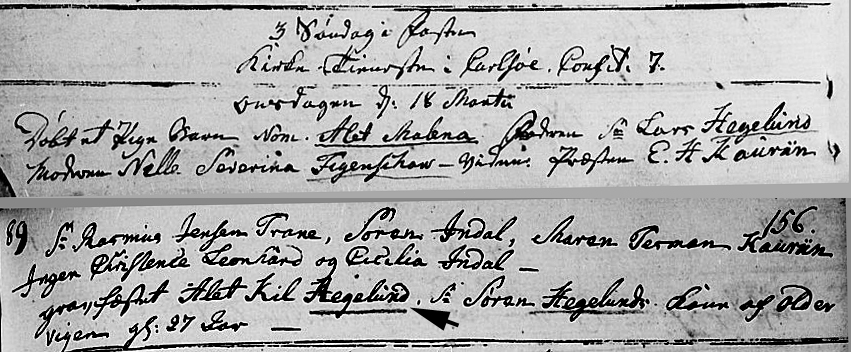 3 Søndag i Fasten
Kirke-Tienesten i Carlsøe. Confit. 7.
Onsdagen d: 18 Martii
Døbt et Pige Barn nom. Alet Malena Fadren Sr Lars Hegelund
Modren Nelle Severina Figenschow - Vidnis: Præsten E. H Kaurin
89 156.
Sr Rasmus Jensen Trane, Søren Indal, Maren Kaurin
Inger Christence Leonhard og Cicilia Indal -
gravfæstet Alet Kil Hegelund, Sr Søren Hegelunds Kone af Older
vigen gl: 27 Aar -